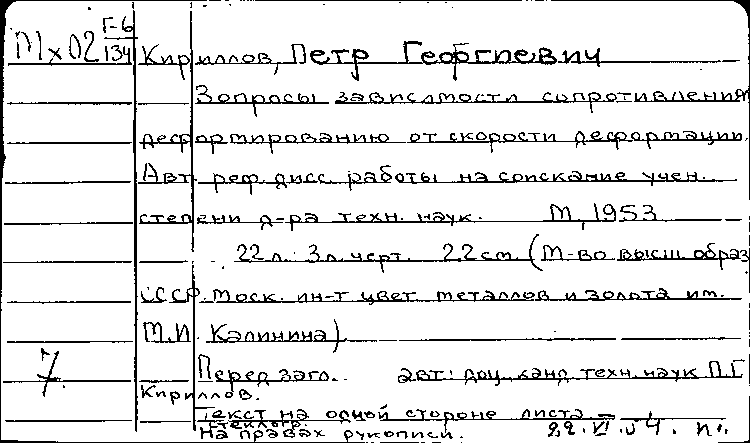 Мх02 Г-6/134 Кириллов, Петр Георгиевич
Вопросы зависимости сопротивления
деформированию от скорости деформации.
Авт. реф. дисс. работы на соискание учен.
степени д-ра техн. наук. М, 1953
22 л. 3 л. черт. 22 см. (М-во высш. образ
СССР. Моск. ин-т цвет. металлов и золота им.
М.И. Калинина)
Перед загл. авт: доц. канд. техн. наук П.Г.
7. Кириллов.
Текст на одной стороне листа.
Стеклогр.
На правах рукописи. 22.VI.54. п.